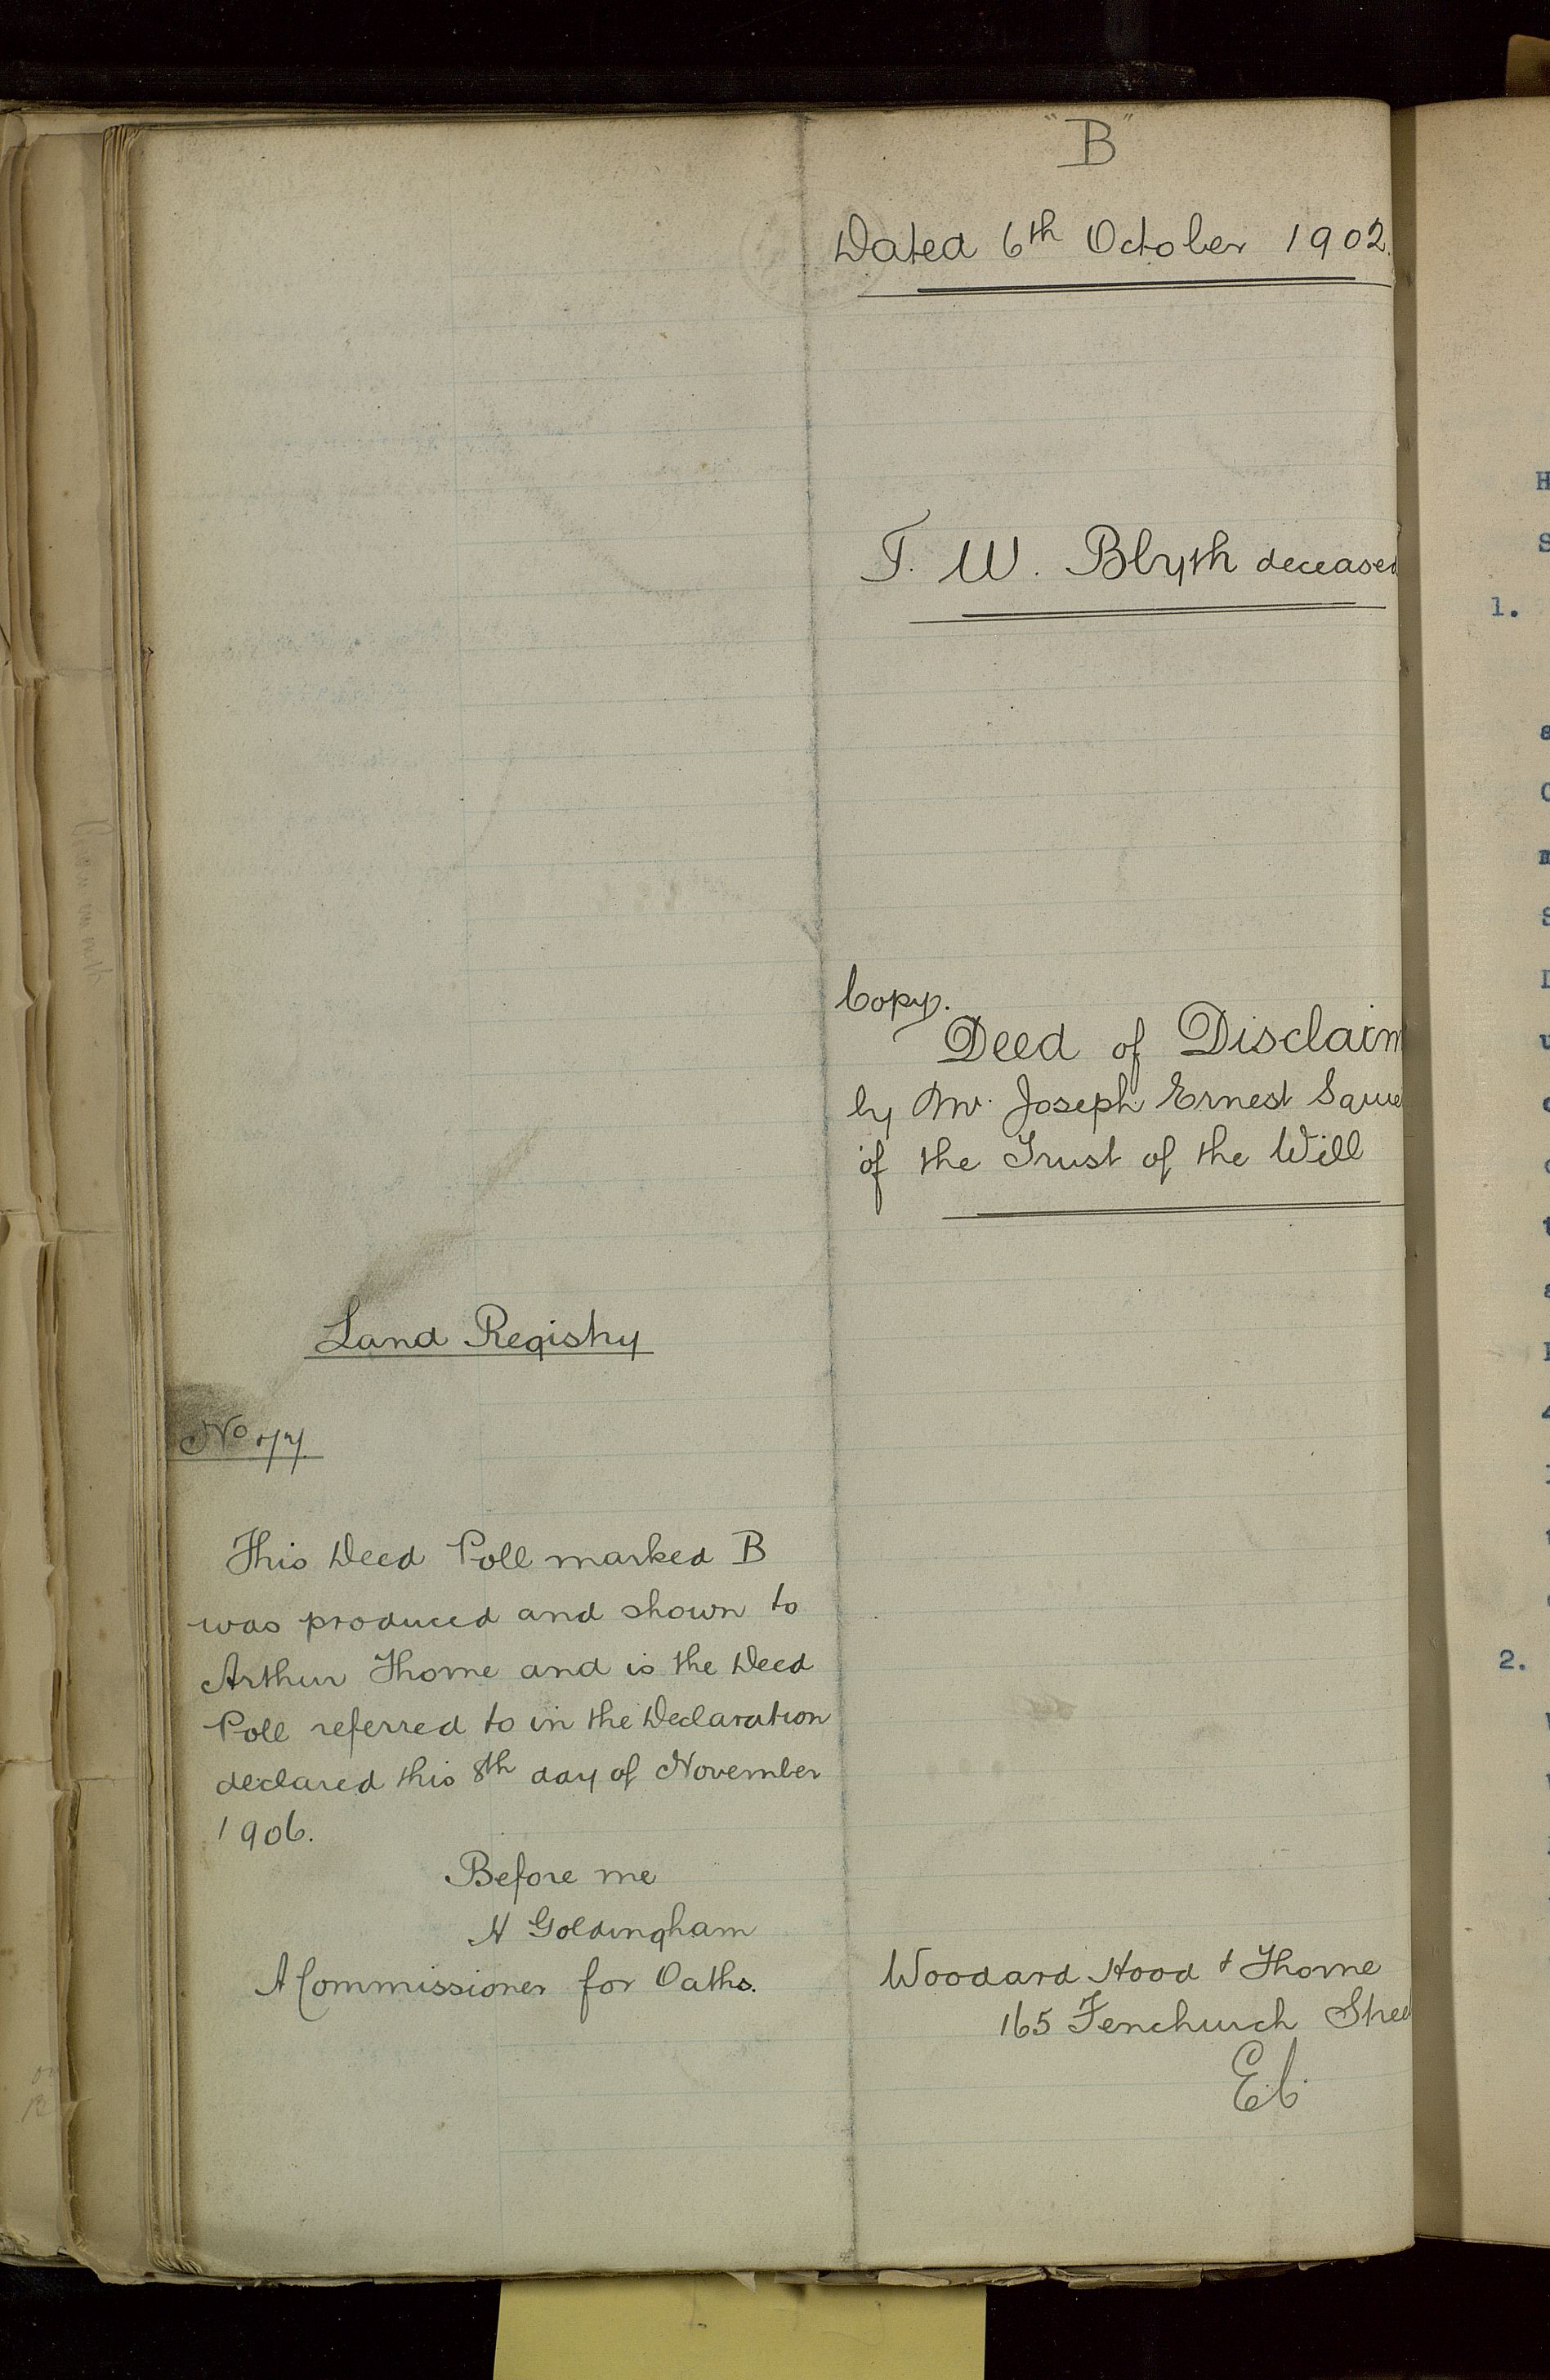 "B"
Dated 6th October 1902.
T. W. Blyth deceased
Copy.
Deed of Disclaim
by Mr. Joseph Ernest
of the Trust of the Will
Woodard Hood & Thorne
165 Fenchurch Stree
E.C.
Land Registry
No 77.
This Deed Poll marked B
was produced and shown to
Arthur Thorne and is the Deed
Poll referred to in the Declaration
declared this 8th day of November
1906.
Before me
H Goldingham
A Commissioner for Oaths.
1.
2.